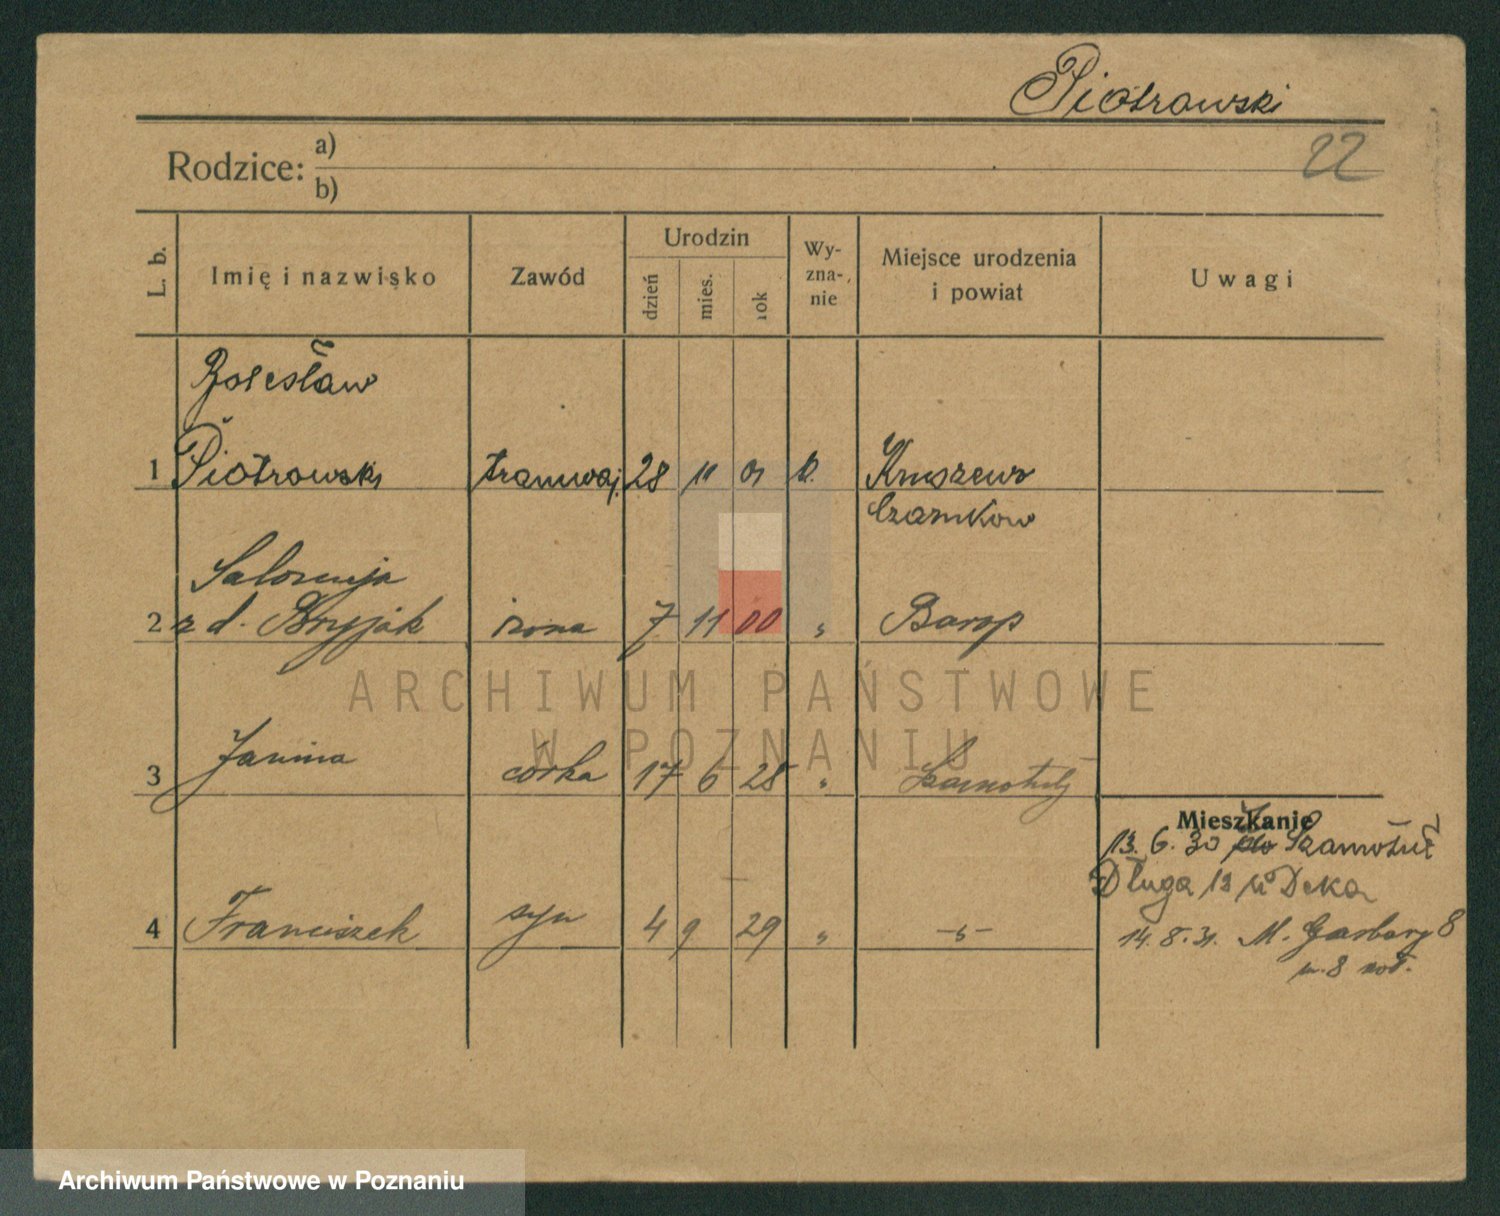 Piotrowski
22
Rodzice: a)
b)
L. b. Imię i nazwisko Zawód Urodzin dzień mies. rok Wy-zna-nie Miejsce urodzenia i powiat Uwagi
Bolesław
1 Piotrowski tramwaj. 28 11 01 k. Kruszewo
Czarnków
Salomeja
2 z d. Bryjak żona 7 11 00 " Barop
ARCHIWUM PAŃSTWOWE
W POZNANIU
3 Janina córka 17 6 28 " Szamotuły
Mieszkanie
13. 6. 30 Szamotuł
Długa 12 u Deka
4 Franciszek syn 4 9 29 " -"-
14. 8. 31. M. Garbary 8
m. 8 
Archiwum Państwowe w Poznaniu